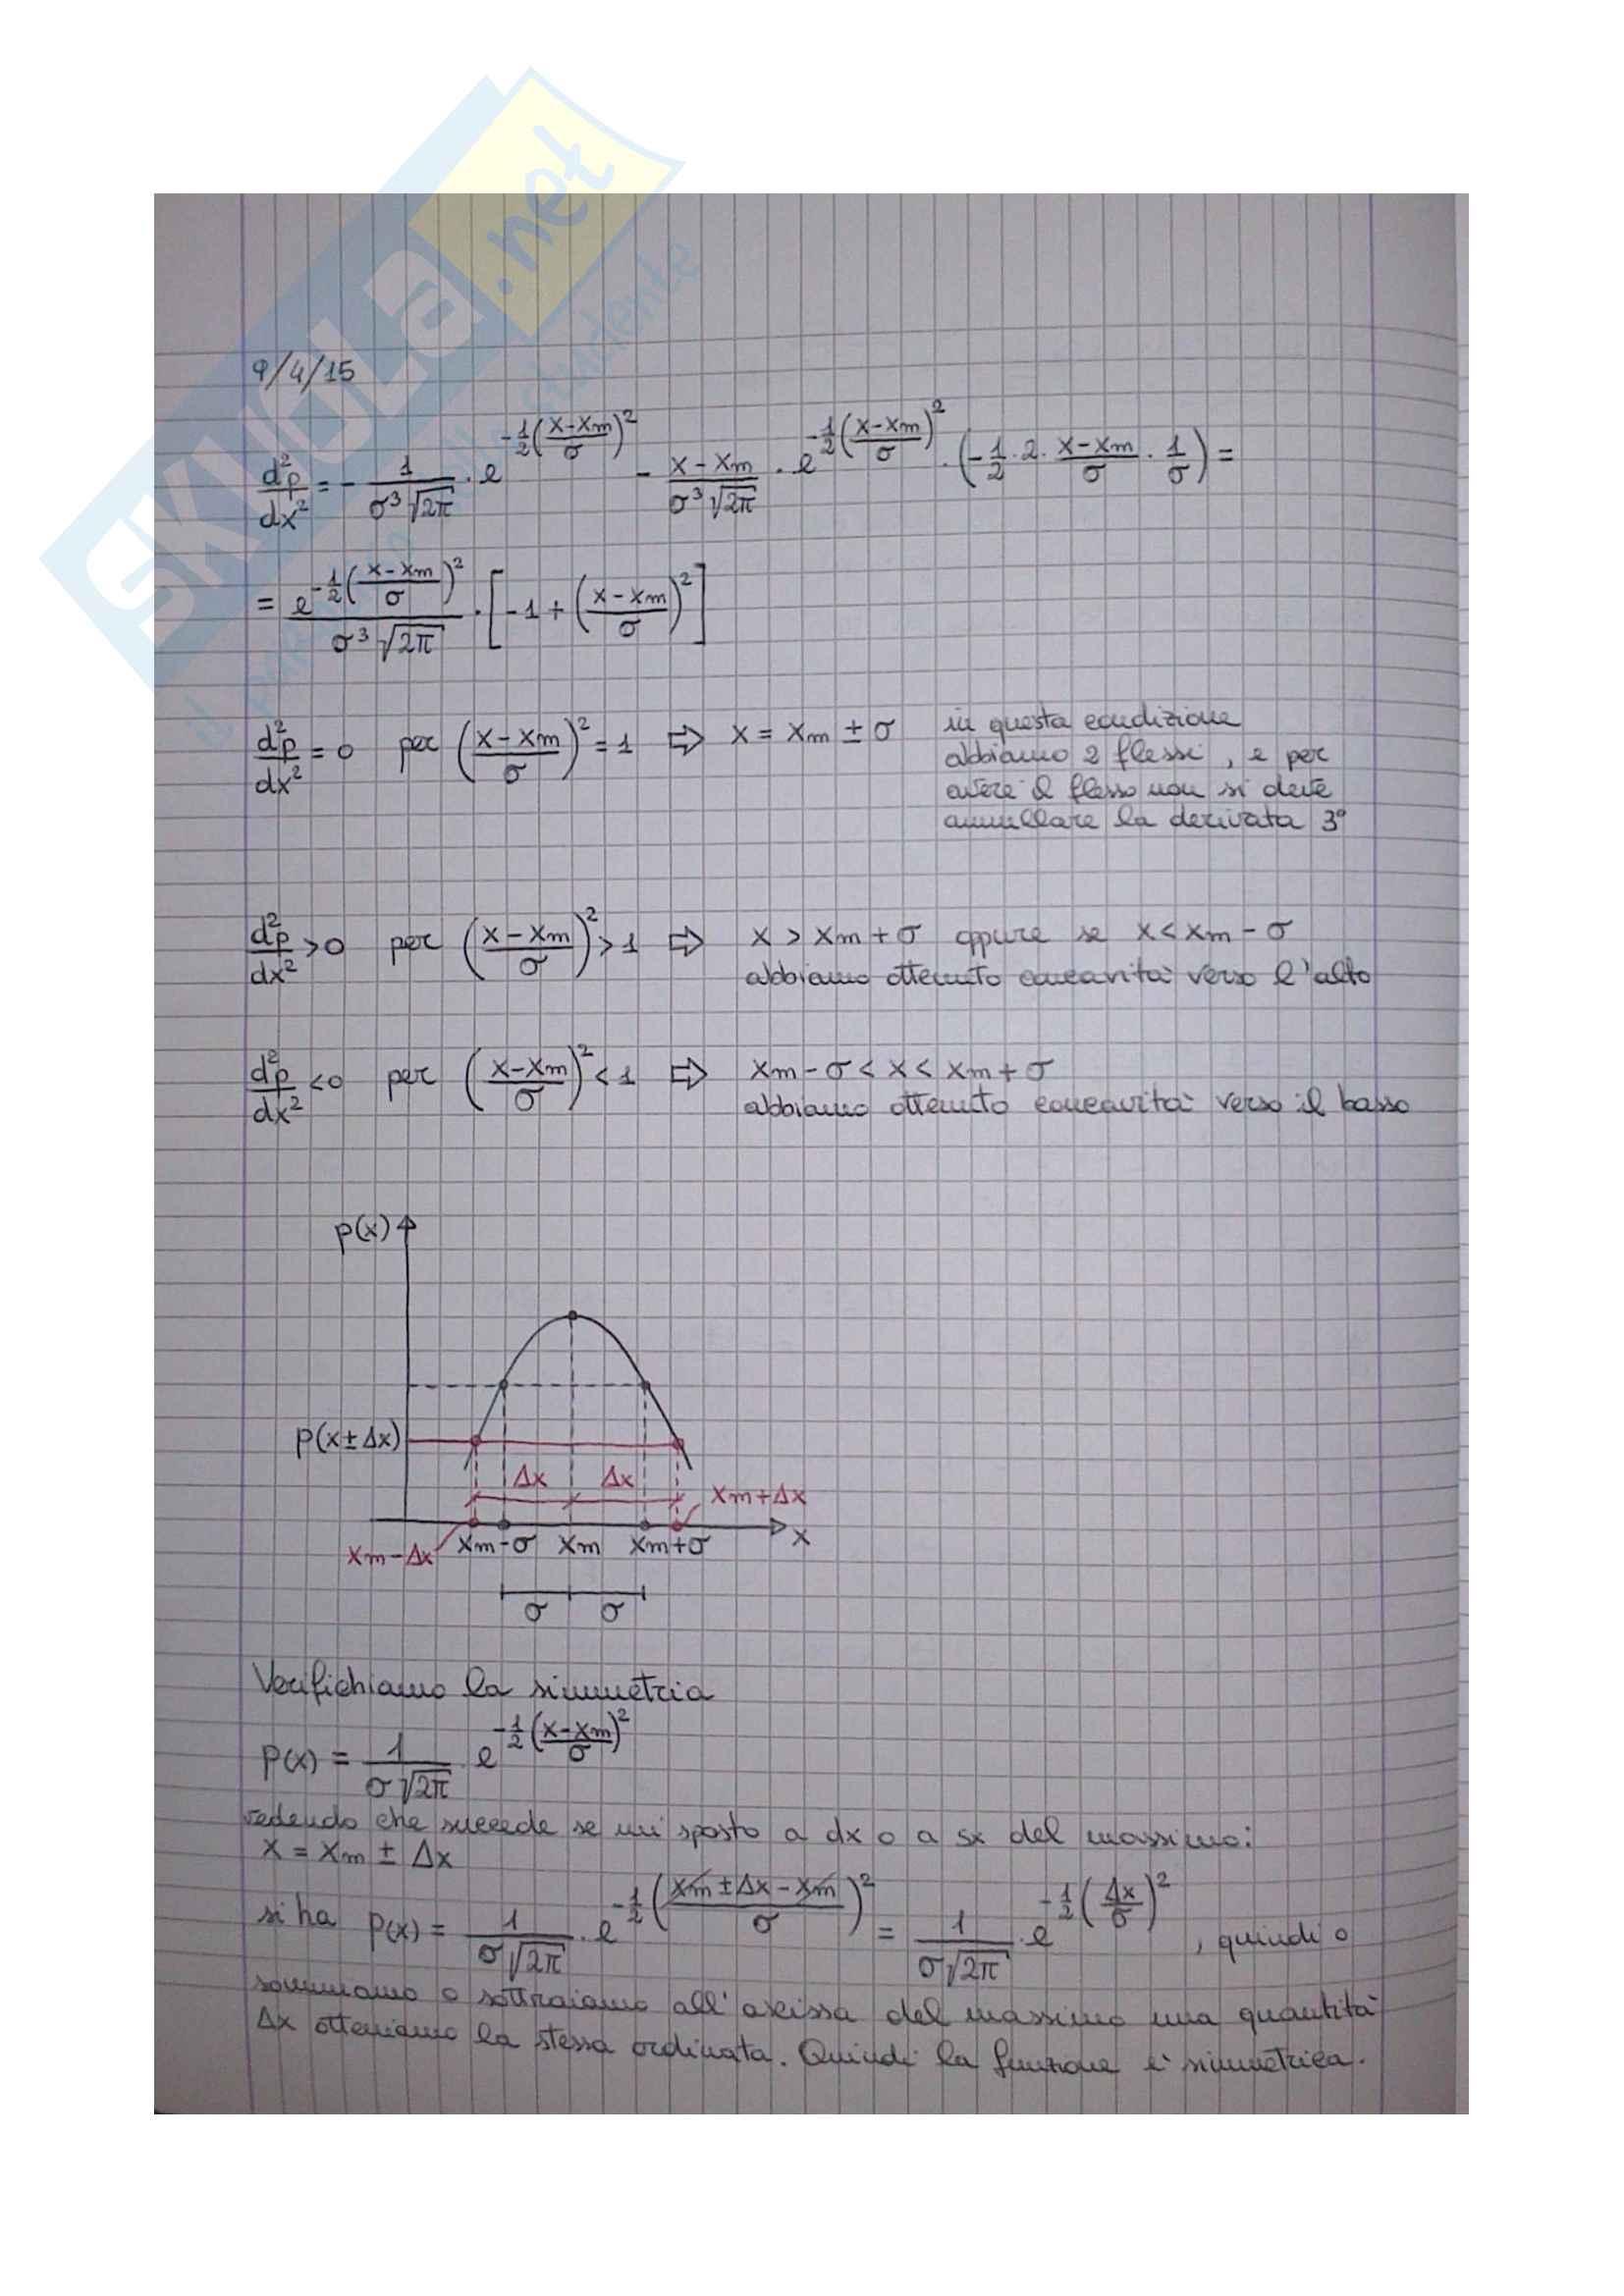 SKUOLa.net
9/4/15
d²p/dx² = - 1/(σ³√2π) · e^(-1/2((x-xm)/σ)²) - (x-xm)/(σ³√2π) · e^(-1/2((x-xm)/σ)²) · (-1/2 · 2 · (x-xm)/σ · 1/σ) =
= e^(-1/2((x-xm)/σ)²)/(σ³√2π) · [-1 + ((x-xm)/σ)²]
d²p/dx² = 0 per ((x-xm)/σ)² = 1 ⇨ x = xm ± σ
in questa condizione
abbiamo 2 flessi, e per
avere il flesso non si deve
annullare la derivata 3°
d²p/dx² > 0 per ((x-xm)/σ)² > 1 ⇨ x > xm + σ oppure se x < xm - σ
abbiamo ottenuto concavità verso l'alto
d²p/dx² < 0 per ((x-xm)/σ)² < 1 ⇨ xm - σ < x < xm + σ
abbiamo ottenuto concavità verso il basso
p(x)
p(x±Δx)
Δx Δx
xm+Δx
x
xm-Δx xm-σ xm xm+σ
σ σ
Verifichiamo la simmetria
p(x) = 1/(σ√2π) e^(-1/2((x-xm)/σ)²)
vedendo che succede se mi sposto a dx o a sx del massimo:
x = xm ± Δx
si ha p(x) = 1/(σ√2π) · e^(-1/2((xm±Δx-xm)/σ)²) = 1/(σ√2π) · e^(-1/2(Δx/σ)²), quindi o
sommiamo o sottraiamo all'ascissa del massimo una quantità
Δx otteniamo la stessa ordinata. Quindi la funzione è simmetrica.